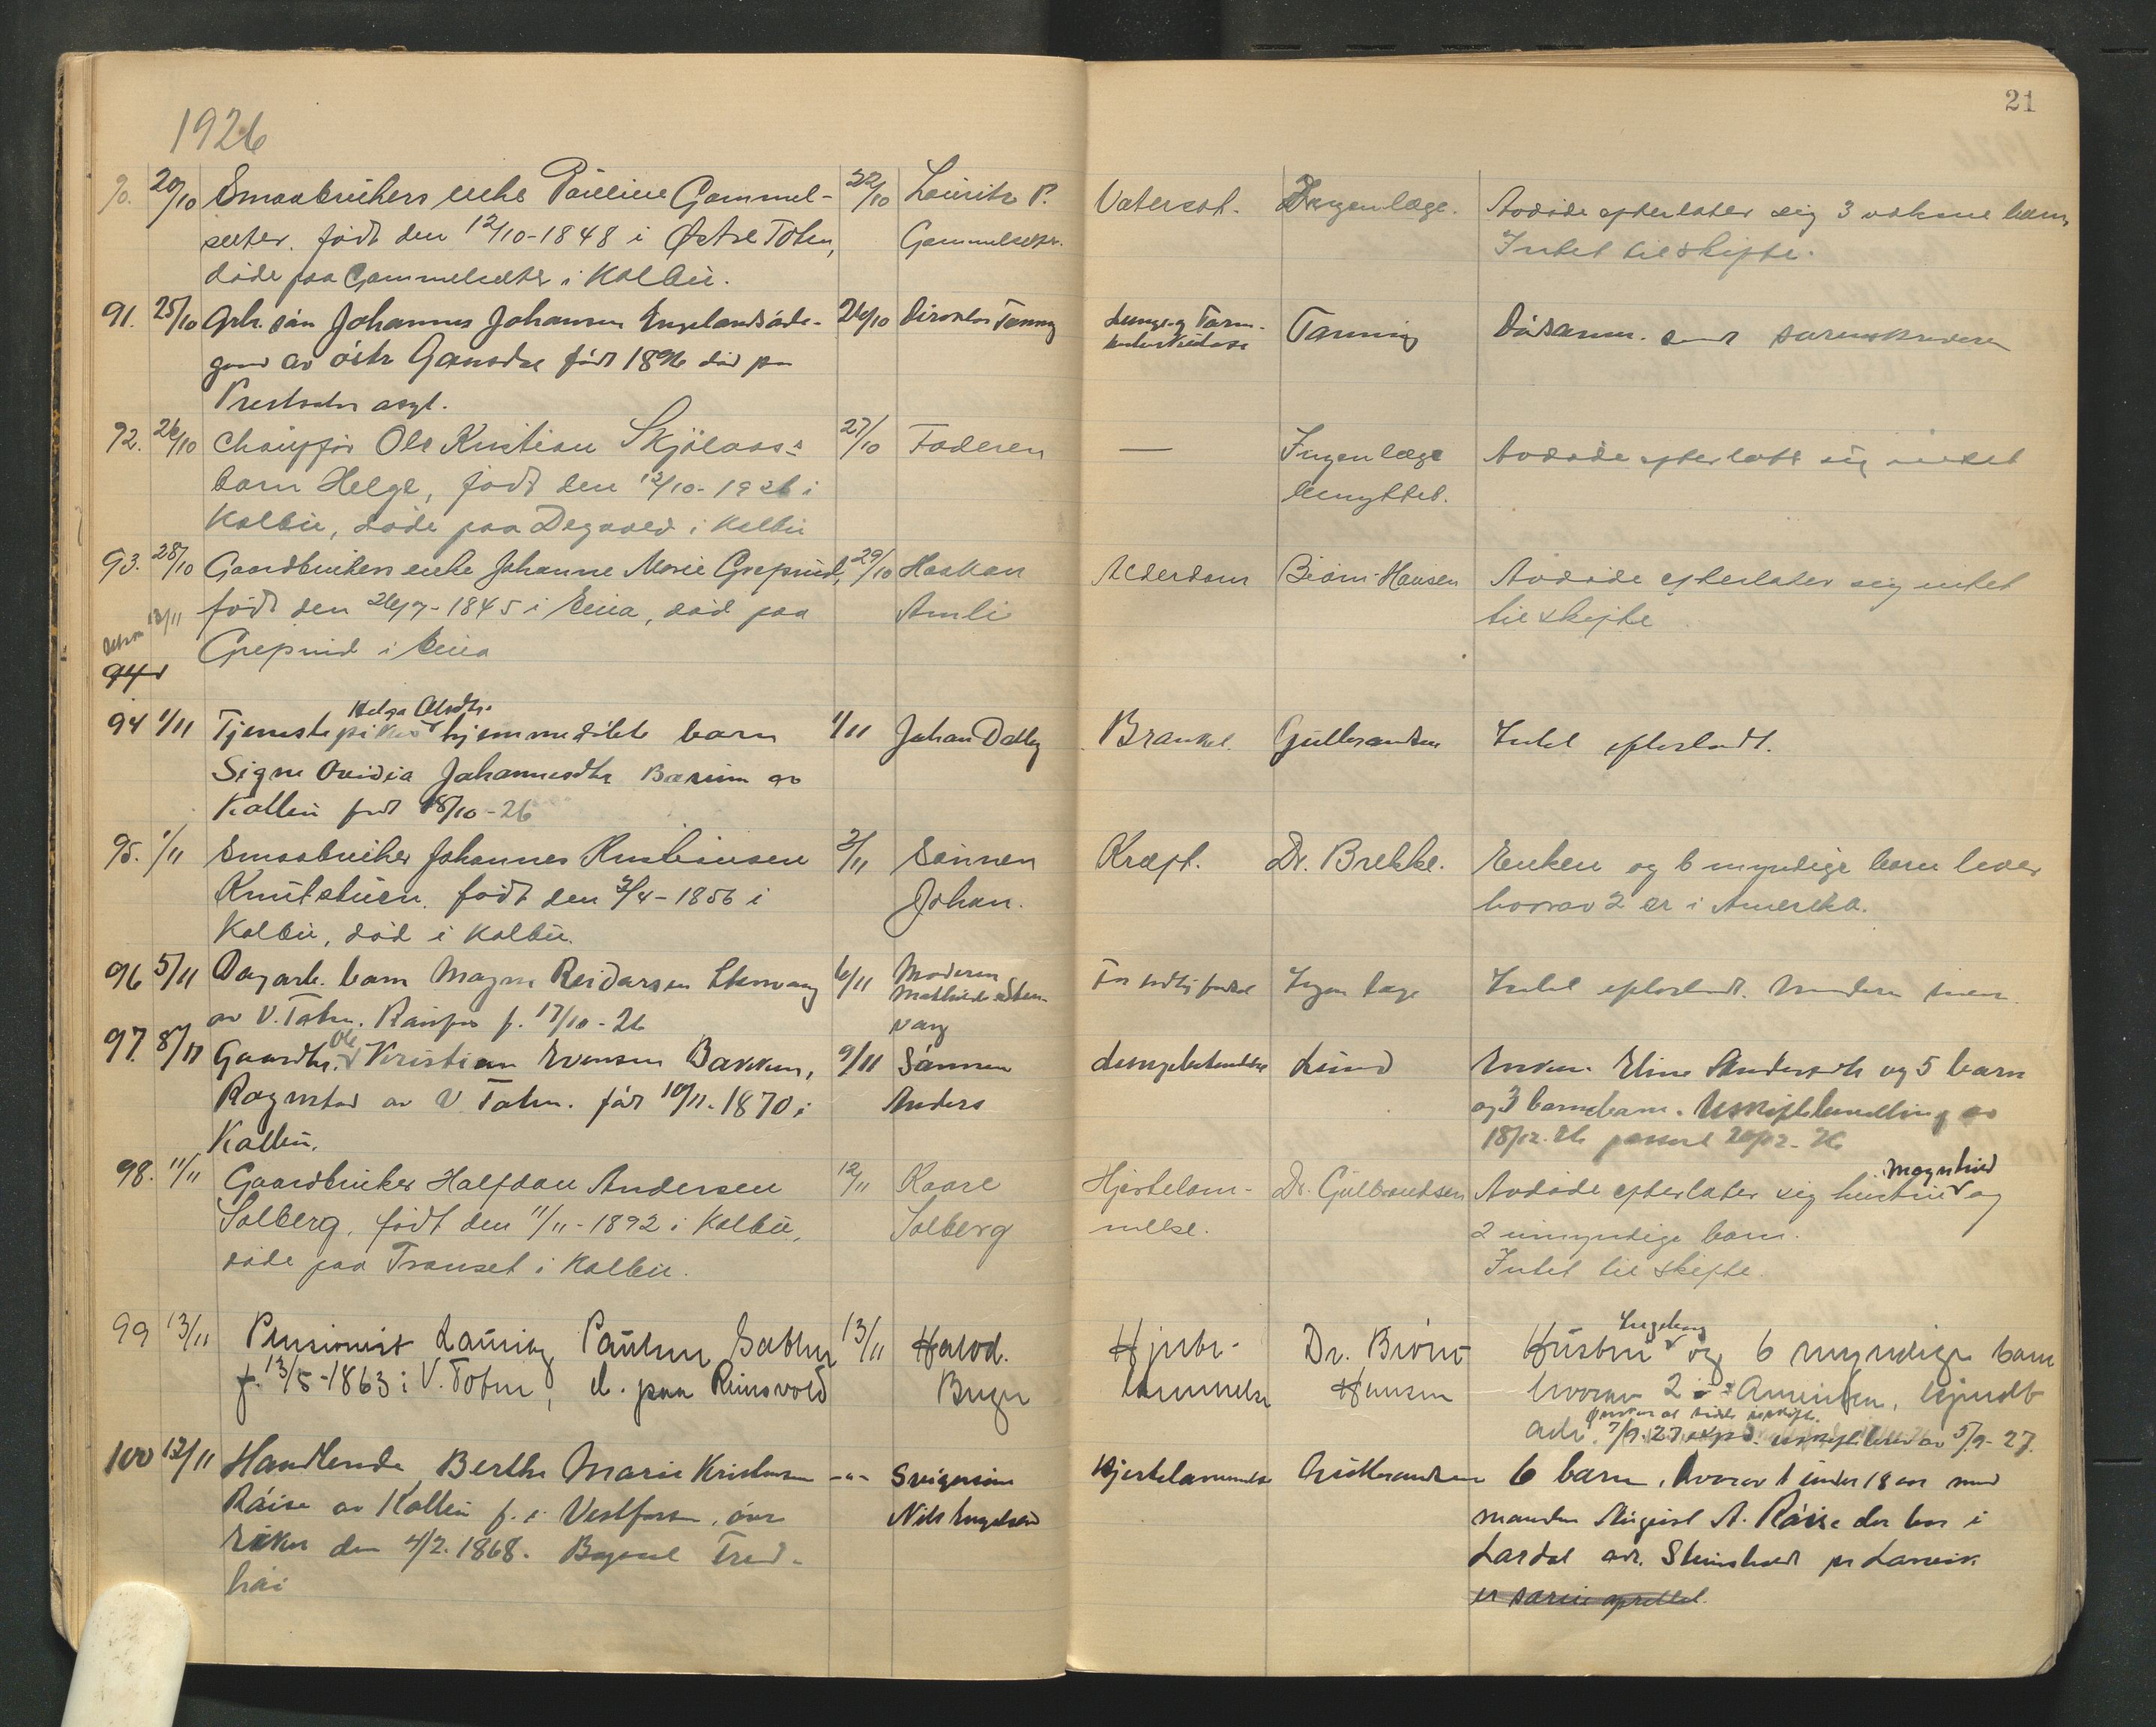 21
1926
90. 20/10 Smaabrukers enke Pauline Gammel- 22/10 Lauritz P. Vatersot. Ingen læge. Avdøde efterlater sig 3 voksne barn
sæter. født den 12/10-1848 i Østre Toten, Gammelsæter. Intet til skifte.
døde paa Gammelsæter i Kolbu.
91. 25/10 Grb. søn Johannes Johansen Engelandsøde- 26/10 Direktør Tanning Lunge og Tarm- Tanning Dødsanm.
gaard av østre født 1896 død pa
asyl.
92. 26/10 Chauffør Ole Kristian Skjølaas's 27/10 Faderen — Ingen læge Avdøde efterlott sig intet
barn Helge, født den 12/10-1926 i benyttet.
Kolbu, døde paa i Kolbu
93. 28/10 Gaardbrukers enke Johanne Marie Grepsrud, 29/10 Haakon Alderdom Biørn-Hansen Avdøde efterlater sig intet
født den 26/7-1845 i Eina, død paa Amli til skifte.
12/11
Grepsrud i Eina
94
Helga Olsdtr.
94 1/11 Tjenestepikes hjemmedøbte barn 1/11 Johan Dalby Gulbrandsen Intet efterladt.
Signe Ovidia Johannesdtr av
Kolbu født 18/10-26
95. 1/11 Smaabruker Johannes Kristiansen 2/11 Sønnen Kræft. Dr. Brekke. Enken og 6 myndige barn lever
Knutstuen. født den 3/4-1856 i Johan. hvorav 2 er i Amerika.
Kolbu, død i Kolbu.
96 5/11 Dagarb. barn Magne Reidarsen Stenvang 6/11 Moderen For tidlig født Ingen læge Intet efterladt.
Mathilde Sten-
av V. Toten. Raufos f. 17/10-26 vang
Ole
97. 8/11 Gaardbr. Kristian Evensen Bakken, 9/11 Sønnen Lungebetændelse Lund Enken Eline Andersdtr og 5 barn
av V. Toten. fød 10/11-1870 i Anders og 3 barnebarn. Uskiftebevilling av
Kolbu. 18/12.26
Magnhild
98. 11/11 Gaardbruker Halfdan Andersen 12/11 Kaare Hjertelam- Dr. Gulbrandsen Avdøde efterlater sig hustru og
Solberg, født den 11/11-1892 i Kolbu, Solberg melse. 2 umyndige barn.
døde paa Transet i Kolbu. Intet til skifte.
Ingeborg
99 13/11 Pensionist Lauritz Paulsen 13/11 Halvd. Hjerte- Dr. Biørn- Hustru og 6 myndige barn
f. 13/5-1863 i V. Toten, d. paa Reinsvold lammelse Hansen hvorav 2 i Amerika,
7/9.27 av 5/9-27.
100 12/11 Handlende Berthe Marie Kristiansen -"- Svigersøn Hjertelammelse Gulbrandsen 6 barn, hvorav 1 under 18 aar med
av Kolbu f. i Vestfossen, øvre Nils manden August A. der bor i
Eker den 4/2.1868. Lardal adr. pr Larvik